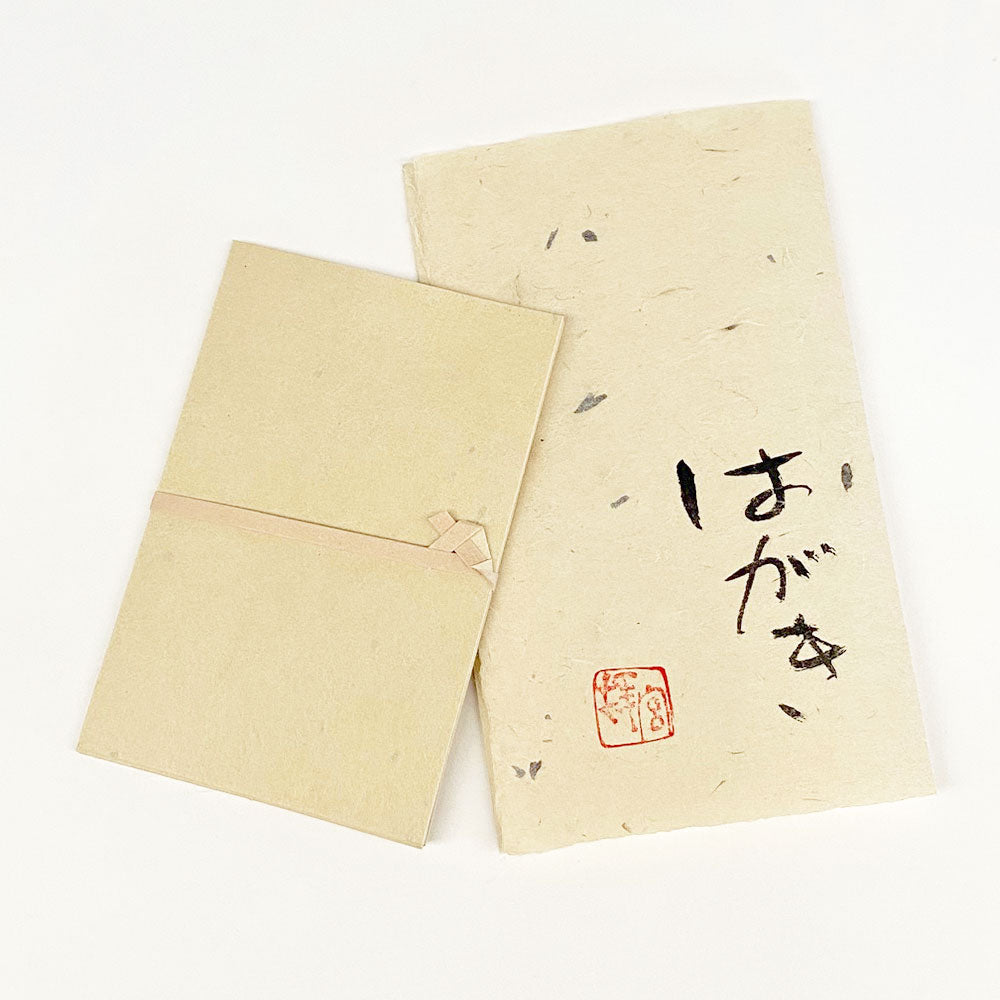 はがき